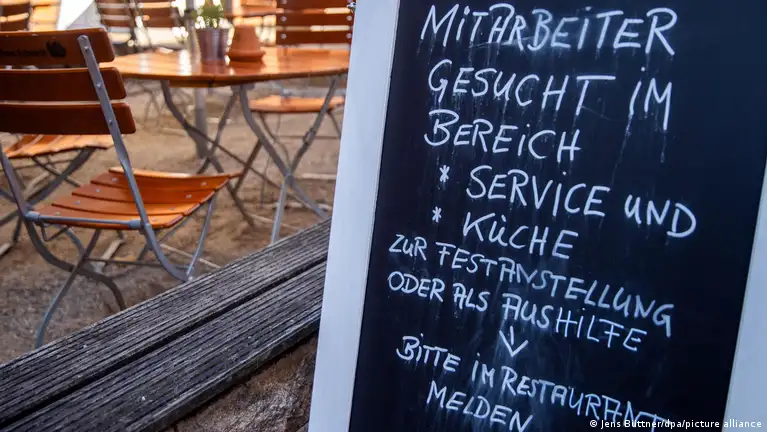 MITARBEITER
GESUCHT IM
BEREICH
* SERVICE UND
* KÜCHE
ZUR FESTANSTELLUNG
ODER ALS AUSHILFE
↓
BITTE IM RESTAURANT
MELDEN
© Jens Büttner/dpa/picture alliance